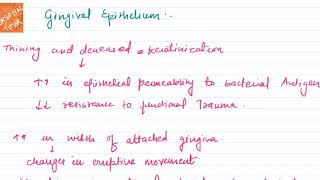 Gingival Epithelium:-
Thining and decreased keratinication
↓
↑↑ in epithelial permeability to bacterial Antigen
↓↓ resistance to functional Trauma.
↑↑ in width of attached gingiva
↓
changes in eruptive movement